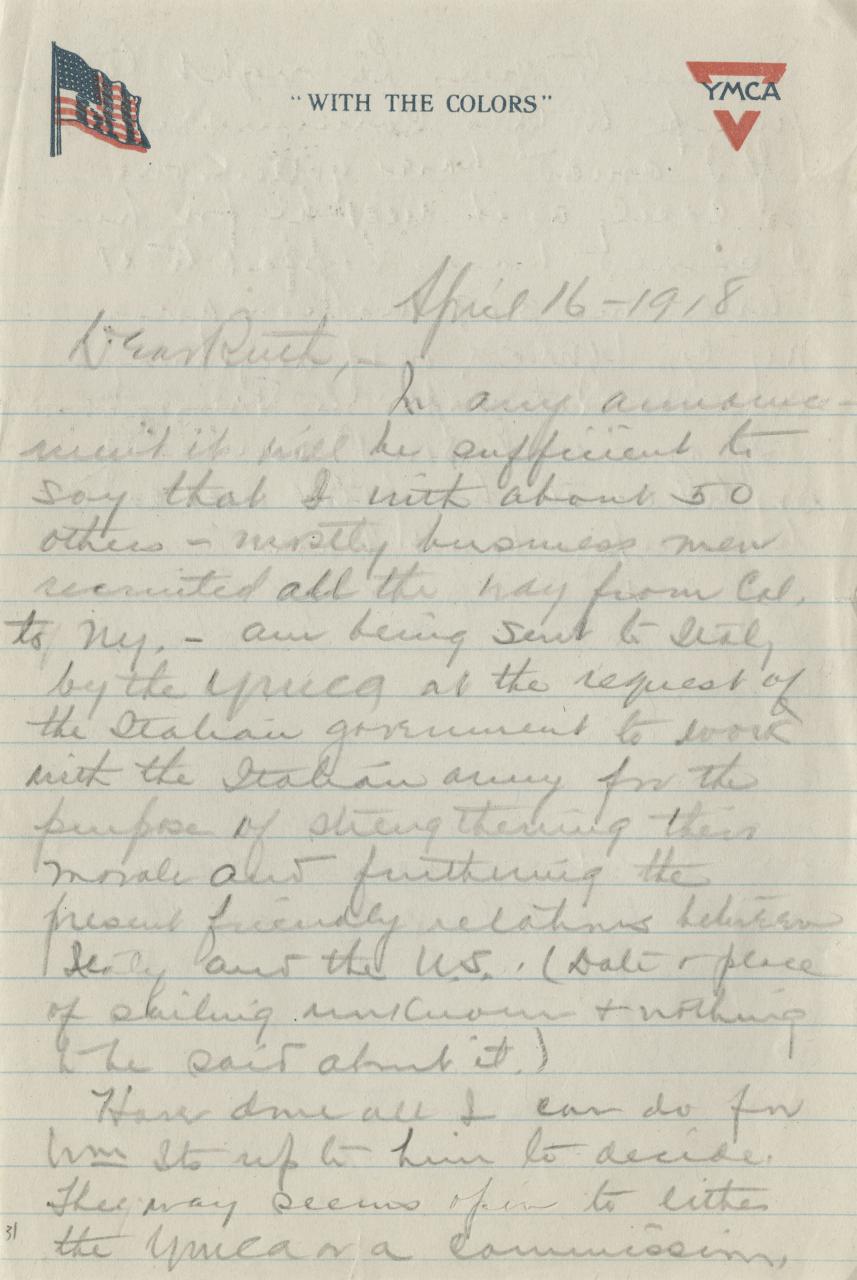 "WITH THE COLORS"
YMCA
April 16-1918
Dear Ruth, -
In any announce-
ment it will be sufficient to
say that I with about 50
others - mostly business men
recruited all the way from Col.
to Ny. - am being sent to Italy
by the YMCA at the request of
the Italian government to work
with the Italian army for the
purpose of strengthening their
morale and furthering the
present friendly relations between
Italy and the U.S. (Date + place
of sailing unknown + nothing
to be said about it.)
Have done all I can do for
Wm Its up to him to decide.
The way seems open to either
the YMCA or a commission,
31